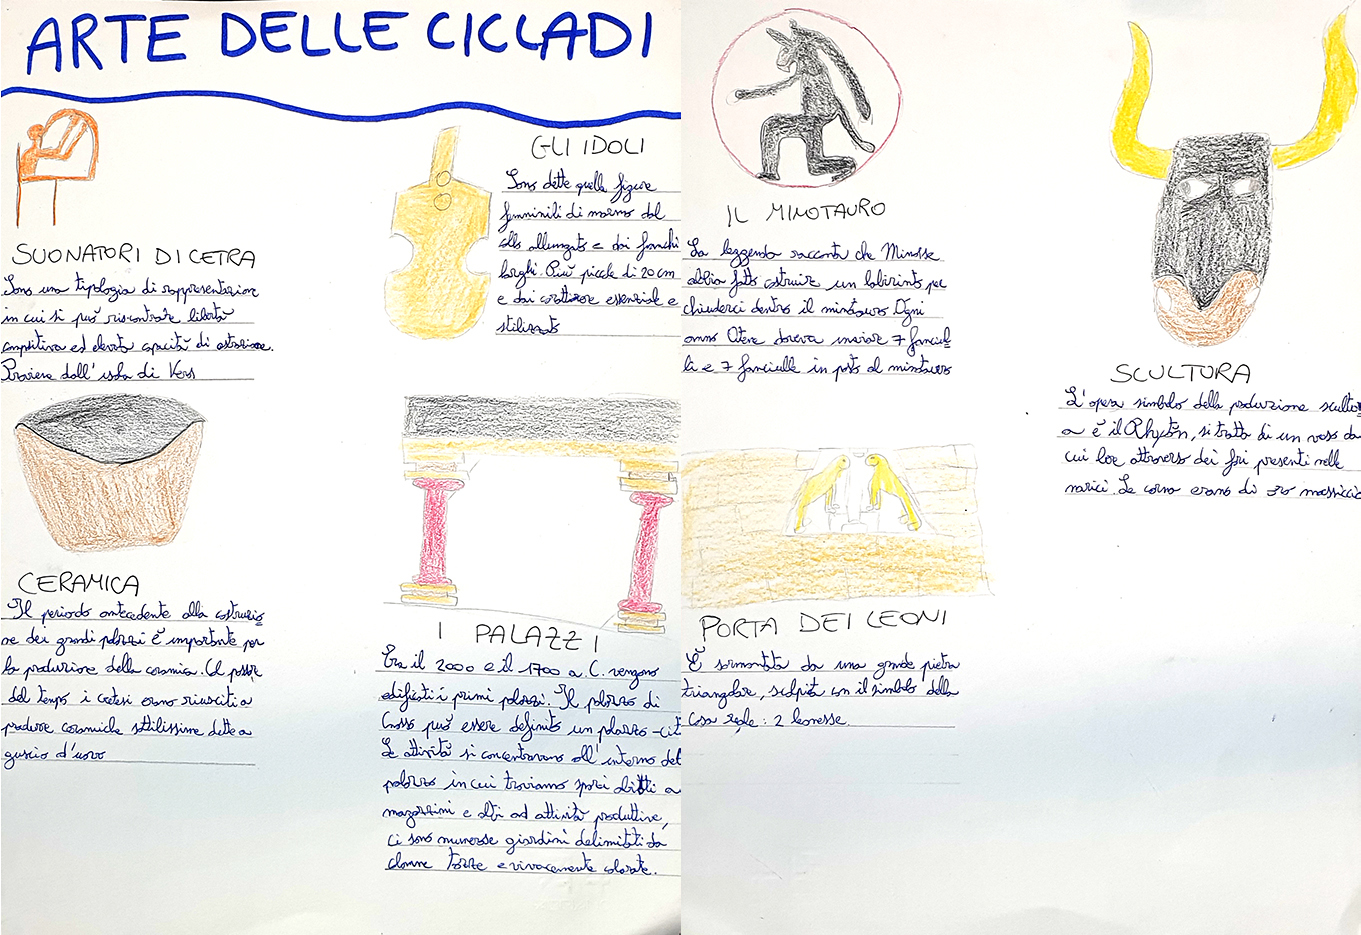 ARTE DELLE CICLADI
SUONATORI DI CETRA
Sono una tipologia di rappresentazione
in cui si può riscontrare libertà
compositiva ed elevata capacità di astrazione.
Proviene dall'isola di Keros
GLI IDOLI
Sono dette quelle figure
femminili di marmo dal
collo allungato e dai fianchi
larghi. Più piccole di 20 cm
e dai carattere essenziale e
stilizzato
CERAMICA
Il periodo antecedente alla costruzio
ne dei grandi palazzi è importante per
la produzione della ceramica. Col passare
del tempo i cretesi erano riusciti a
produrre ceramiche sottilissime dette a
guscio d'uovo
I PALAZZI
Tra il 2000 e il 1700 a.C. vengono
edificati i primi palazzi. Il palazzo di
Cnosso può essere definito un palazzo-cit
Le attività si concentravano all'interno del
palazzo in cui troviamo spazi adibiti a
magazzini e altri ad attività produttive,
ci sono numerose giardini delimitati da
colonne tozze e vivacemente colorate.
IL MINOTAURO
La leggenda racconta che Minosse
abbia fatto costruire un labirinto per
chiuderci dentro il minotauro Ogni
anno Atene doveva inviare 7 fanciul
li e 7 fanciulle in pasto al minotauro
PORTA DEI LEONI
È sormontata da una grande pietra
triangolare, scolpita con il simbolo della
Casa reale: 2 leonesse.
SCULTURA
L'opera simbolo della produzione scultore
a è il Rhyton, si tratta di un vaso da
cui bere attraverso dei fori presenti nelle
narici. Le corna erano di oro massiccio